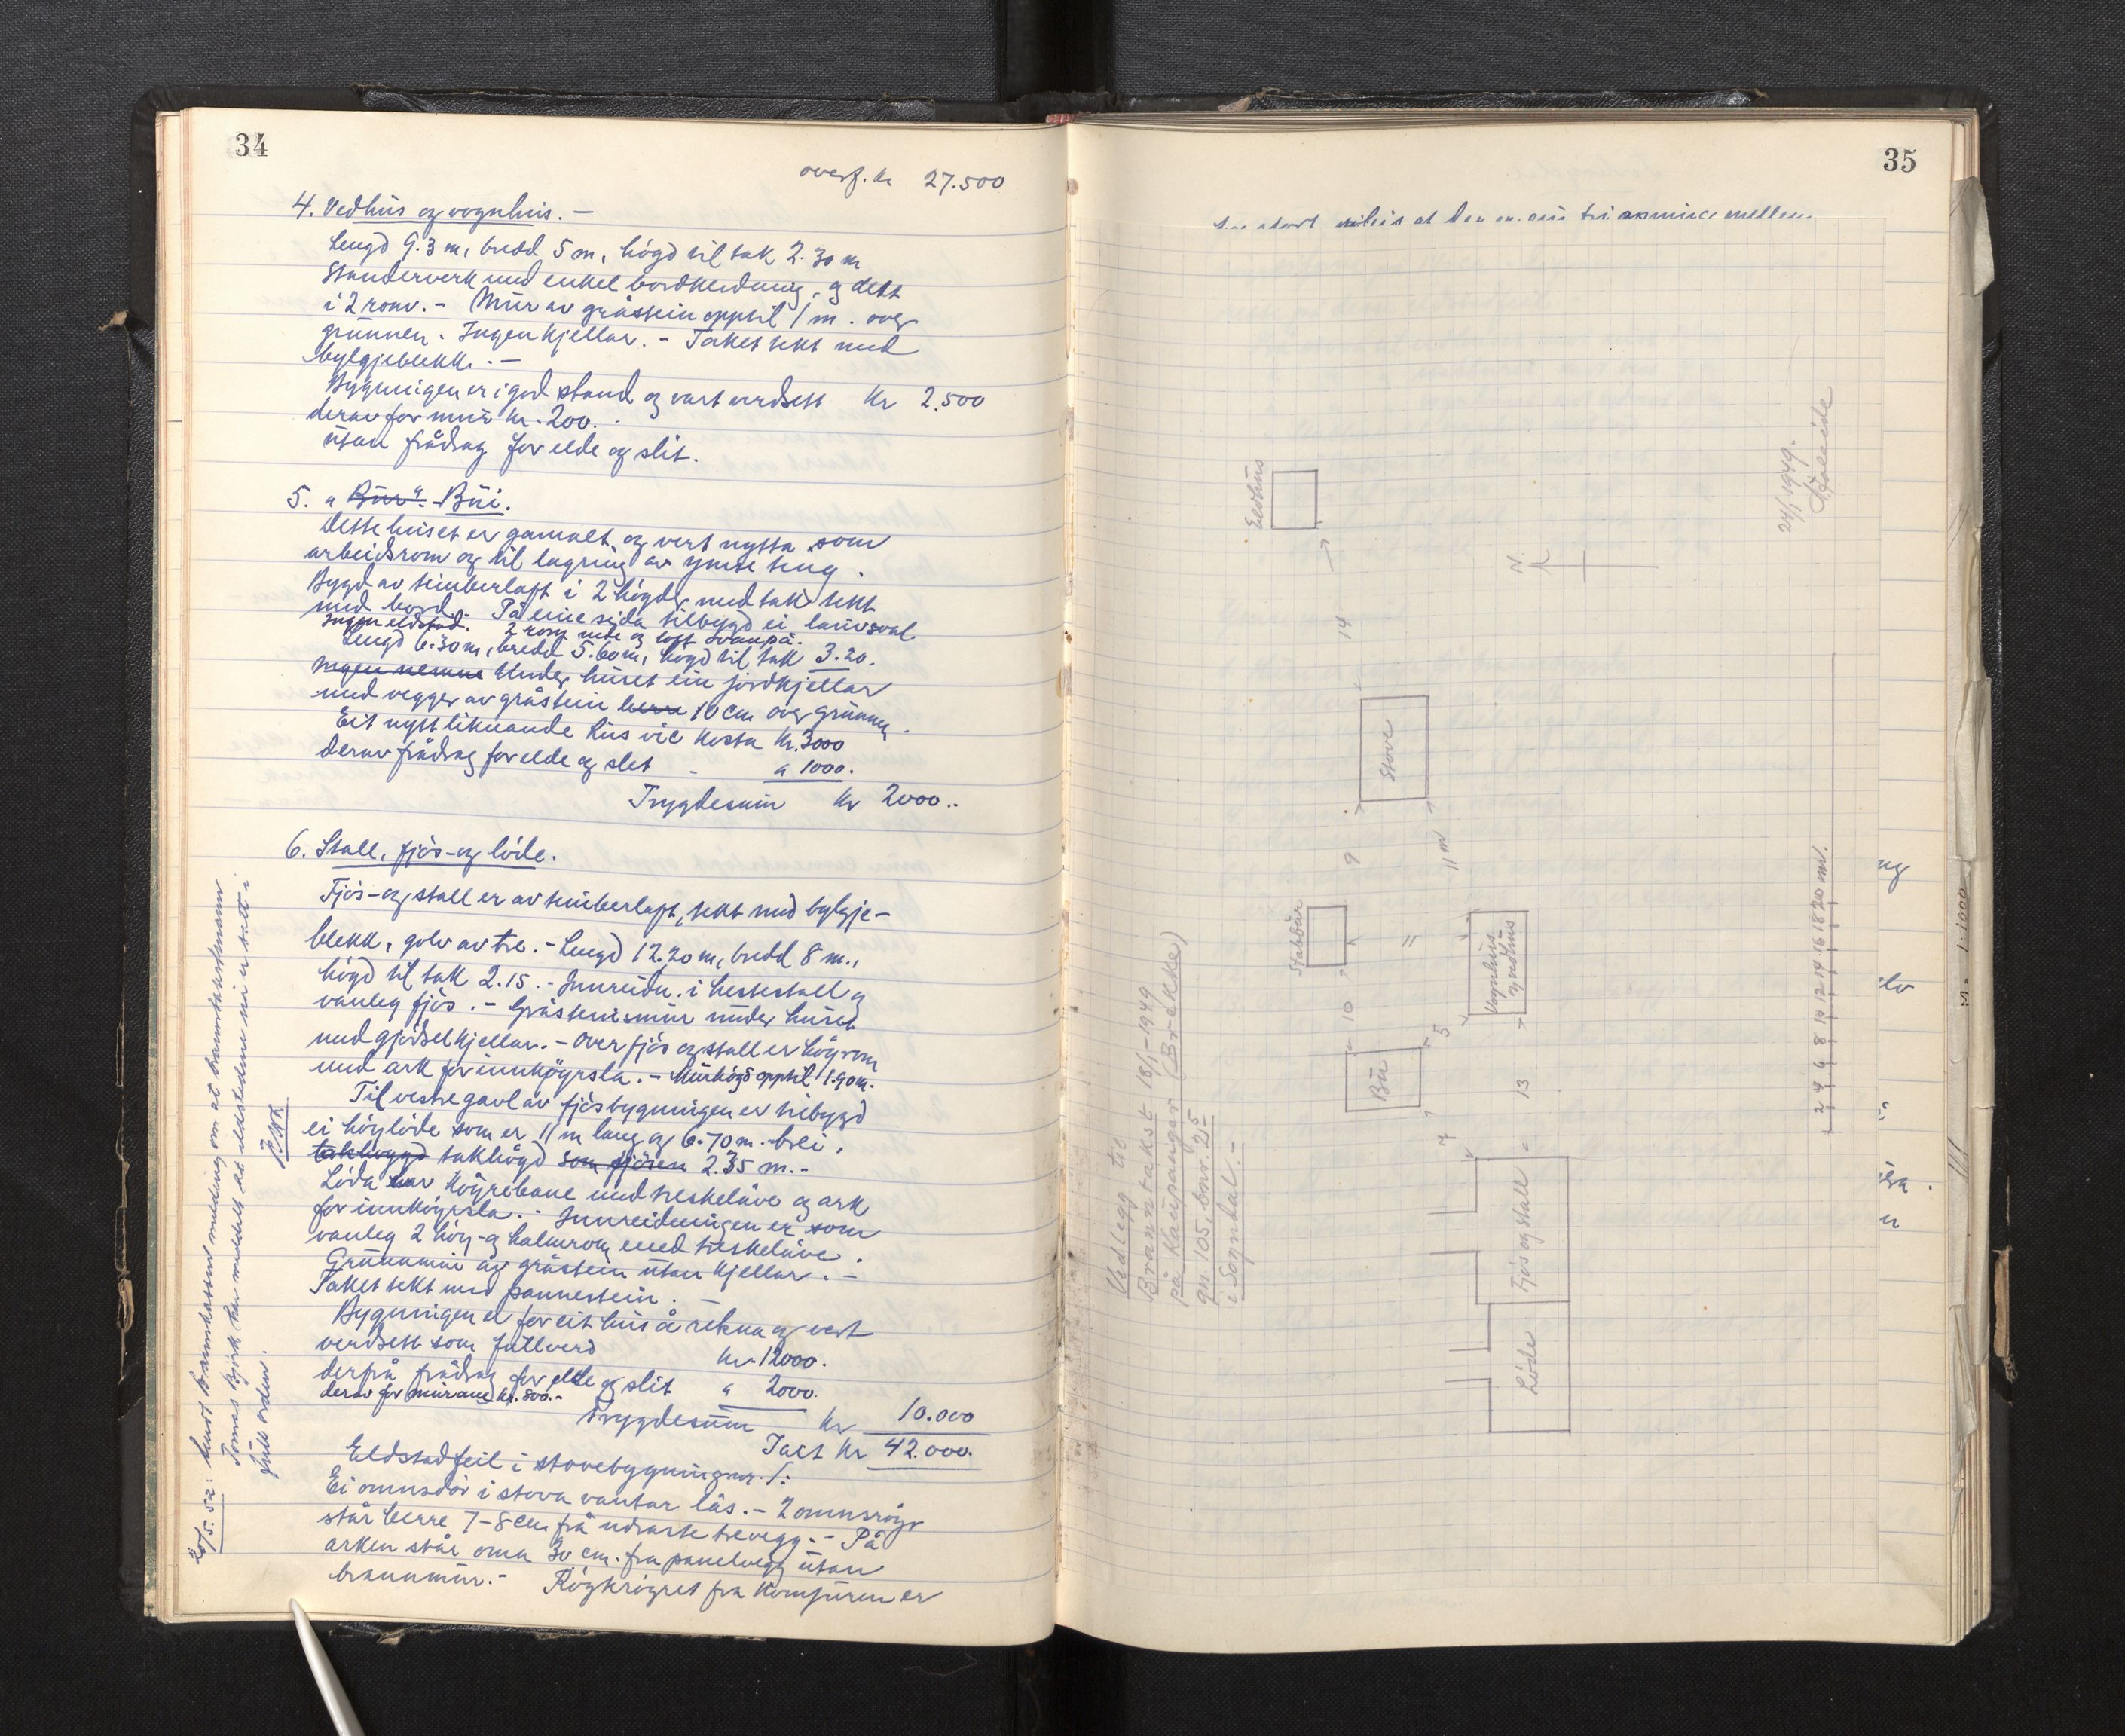 34
overf. kr 27.500
4. Vedhus og vognhus. –
Lengd 9.3 m, bredd 5 m, høgd til tak 2.30 m
Standerverk med enkel bordkledning, og delt
i 2 rom. – Mur av gråstein opptil 1 m. over
grunnen. Ingen kjellar. – Taket tekt med
bylgjeblekk. –
Bygningen er i god stand og vart verdsett Kr 2.500
derav for mur kr. 200.
utan frådrag for elde og slit.
5. "Bur" Bui.
Dette huset er gamalt og vert nytta som
arbeidsrom og til lagring av ymse ting.
Bygd av timberlaft i 2 høgder med tak tekt
med bord. På eine sida tilbygd ei lauvsval
Ingen eldstad. 2 rom nede og loft ovanpå.
Lengd 6.30 m, bredd 5.60 m, høgd til tak 3.20.
Ingen Under huset ein jordkjellar
med vegger av gråstein berre 10 cm over grunnen.
Eit nytt liknande hus vil kosta kr. 3000
derav frådrag for elde og slit " 1000.
Trygdesum kr 2000..
6. Stall, fjøs- og løde.
Fjøs- og stall er av timberlaft, tekt med bylgje-
blekk, golv av tre. – Lengd 12.20 m, bredd 8 m.,
høgd til tak 2.15. – Innreidn. i hestestall og
vanleg fjøs. – Gråsteinsmur under huset
med gjødselkjellar. – Over fjøs og stall er høyrom
med ark for innkøyrsla. – Murhøgd opptil 1.90 m.
Til vestre gavl av fjøsbygningen er tilbygd
ei høyløde som er 11 m lang og 6.70 m. brei,
takhøgd takhøgd som fjøsen 2.35 m. –
Løda har køyrebane med treskelåve og ark
for innkøyrsla. – Innreidningen er som
vanleg 2 høy- og halmrom med treskelåve.
Grunnmur av gråstein utan kjellar. –
Taket tekt med pannestein. –
Bygningen er for eit hus å rekna og vert
verdsett som fullverd kr. 12000.
derfrå frådrag for elde og slit " 2000.
derav for murane kr. 800.–
Trygdesum kr 10.000
Ialt kr 42.000.
Eldstadfeil i stovebygning nr. 1:
Ei omnsdør i stova vantar lås. – 2 omnsrøyr
står berre 7–8 cm frå næraste trevegg. – På
arken står omn 30 cm. fra panelvegg utan
brannmur. – Røykrøyret fra komfuren er
20/5.52: Sendt brannkassen melding om at branntakstmann
Tomas Bjørk har meddelt at eldstedene nu er sett i
full orden.
35
Vedlegg til
Branntakst 18/1-1949
på Kaupanger (Brekke)
gn. 105, bnr. 25
i Sogndal. –
Eldhus
14
Stove
9
11 m
Stabbur
=
Vognhus
vedhus
10
5
Bu
7
13
Fjøs og stall
Løde
N.
24/1 1949.
2 4 6 8 10 12 14 16 18 20 m.
1:1000
ng